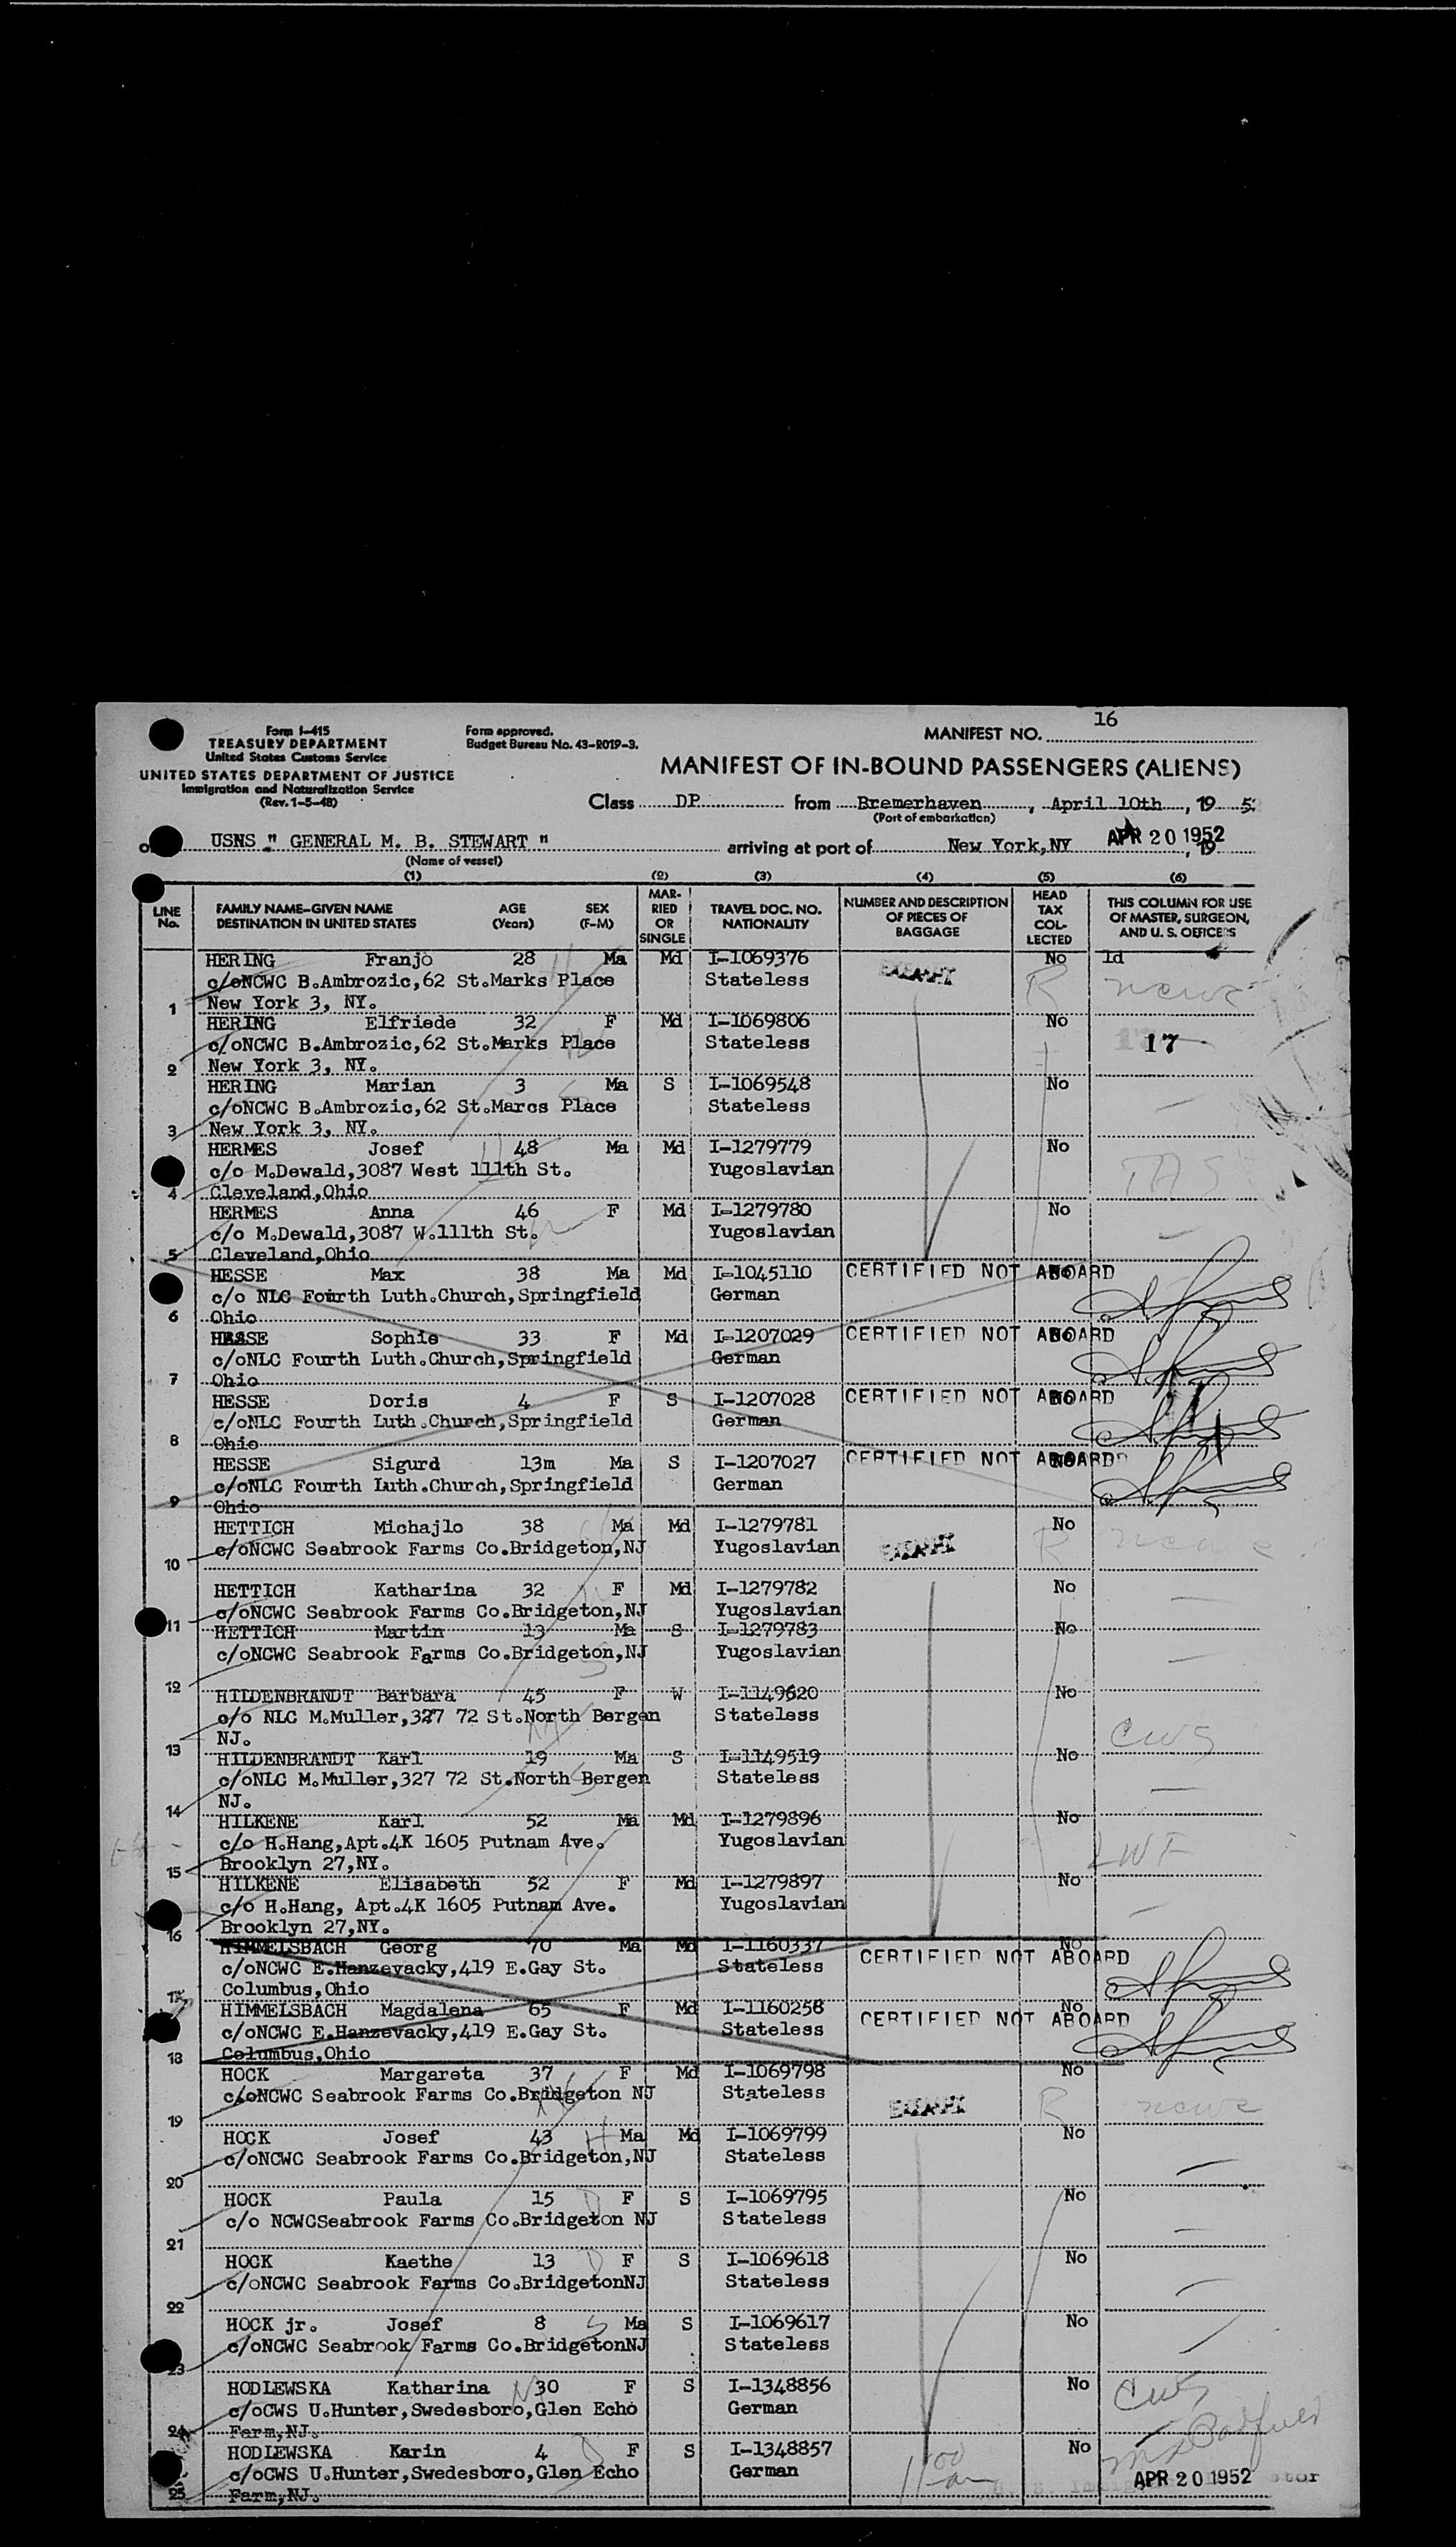 16
Form I-415
TREASURY DEPARTMENT
United States Customs Service
UNITED STATES DEPARTMENT OF JUSTICE
Immigration and Naturalization Service
(Rev. 1-5-48)
Form approved.
Budget Bureau No. 43-R019-3.
MANIFEST NO.
MANIFEST OF IN-BOUND PASSENGERS (ALIENS)
Class DP from Bremerhaven, April 10th, 19 5
(Port of embarkation)
USNS " GENERAL M. B. STEWART " arriving at port of New York,NY APR 20 1952, 19
(Name of vessel)
(1) (2) (3) (4) (5) (6)
LINE No. FAMILY NAME-GIVEN NAME DESTINATION IN UNITED STATES AGE (Years) SEX (F-M) MARRIED OR SINGLE TRAVEL DOC. NO. NATIONALITY NUMBER AND DESCRIPTION OF PIECES OF BAGGAGE HEAD TAX COLLECTED THIS COLUMN FOR USE OF MASTER, SURGEON, AND U. S. OFFICERS
HERING Franjo 28 Ma Md I-1069376 No 1d
c/oNCWC B.Ambrozic,62 St.Marks Place Stateless EXEMPT R ncwc
1 New York 3, NY.
HERING Elfriede 32 F Md I-1069806 No
c/oNCWC B.Ambrozic,62 St.Marks Place Stateless 17
2 New York 3, NY.
HERING Marian 3 Ma S I-1069548 No
c/oNCWC B.Ambrozic,62 St.Marcs Place Stateless
3 New York 3, NY.
HERMES Josef 48 Ma Md I-1279779 No
c/o M.Dewald,3087 West 111th St. Yugoslavian
4 Cleveland,Ohio
HERMES Anna 46 F Md I-1279780 No
c/o M.Dewald,3087 W.111th St. Yugoslavian
5 Cleveland,Ohio
HESSE Max 38 Ma Md I-1045110 CERTIFIED NOT ABOARD No
c/o NLC Fourth Luth.Church,Springfield German
6 Ohio
HESSE Sophie 33 F Md I-1207029 CERTIFIED NOT ABOARD No
c/oNLC Fourth Luth.Church,Springfield German
7 Ohio
HESSE Doris 4 F S I-1207028 CERTIFIED NOT ABOARD No
c/oNLC Fourth Luth.Church,Springfield German
8 Ohio
HESSE Sigurd 13m Ma S I-1207027 CERTIFIED NOT ABOARD No
c/oNLC Fourth Luth.Church,Springfield German
9 Ohio
HETTICH Michajlo 38 Ma Md I-1279781 No
10 c/oNCWC Seabrook Farms Co.Bridgeton,NJ Yugoslavian EXEMPT R ncwc
HETTICH Katharina 32 F Md I-1279782 No
11 c/oNCWC Seabrook Farms Co.Bridgeton,NJ Yugoslavian
HETTICH Martin 13 Ma S I-1279783 No
12 c/oNCWC Seabrook Farms Co.Bridgeton,NJ Yugoslavian
HILDENBRANDT Barbara 45 F W I-1149620 No
c/o NLC M.Muller,327 72 St.North Bergen Stateless CWS
13 NJ.
HILDENBRANDT Karl 19 Ma S I-1149519 No
c/oNLC M.Muller,327 72 St.North Bergen Stateless
14 NJ.
HILKENE Karl 52 Ma Md I-1279896 No
c/o H.Hang,Apt.4K 1605 Putnam Ave. Yugoslavian LWF
15 Brooklyn 27,NY.
HILKENE Elisabeth 52 F Md I-1279897 No
c/o H.Hang, Apt.4K 1605 Putnam Ave. Yugoslavian
16 Brooklyn 27,NY.
HIMMELSBACH Georg 70 Ma Md I-1160337 CERTIFIED NOT ABOARD No
c/oNCWC E.Hanzevacky,419 E.Gay St. Stateless
17 Columbus,Ohio
HIMMELSBACH Magdalena 65 F Md I-1160258 CERTIFIED NOT ABOARD No
c/oNCWC E.Hanzevacky,419 E.Gay St. Stateless
18 Columbus,Ohio
HOCK Margareta 37 F Md I-1069798 No
19 c/oNCWC Seabrook Farms Co.Bridgeton NJ Stateless EXEMPT R ncwc
HOCK Josef 43 H Ma Md I-1069799 No
20 c/oNCWC Seabrook Farms Co.Bridgeton,NJ Stateless
HOCK Paula 15 D F S I-1069795 No
21 c/o NCWCSeabrook Farms Co.Bridgeton NJ Stateless
HOCK Kaethe 13 D F S I-1069618 No
22 c/oNCWC Seabrook Farms Co.BridgetonNJ Stateless
HOCK jr. Josef 8 S Ma S I-1069617 No
23 c/oNCWC Seabrook Farms Co.BridgetonNJ Stateless
HODLEWSKA Katharina 30 F S I-1348856 No CWS
c/oCWS U.Hunter,Swedesboro,Glen Echo German
24 Farm,NJ.
HODLEWSKA Karin 4 D F S I-1348857 No
c/oCWS U.Hunter,Swedesboro,Glen Echo German
25 Farm,NJ. APR 20 1952